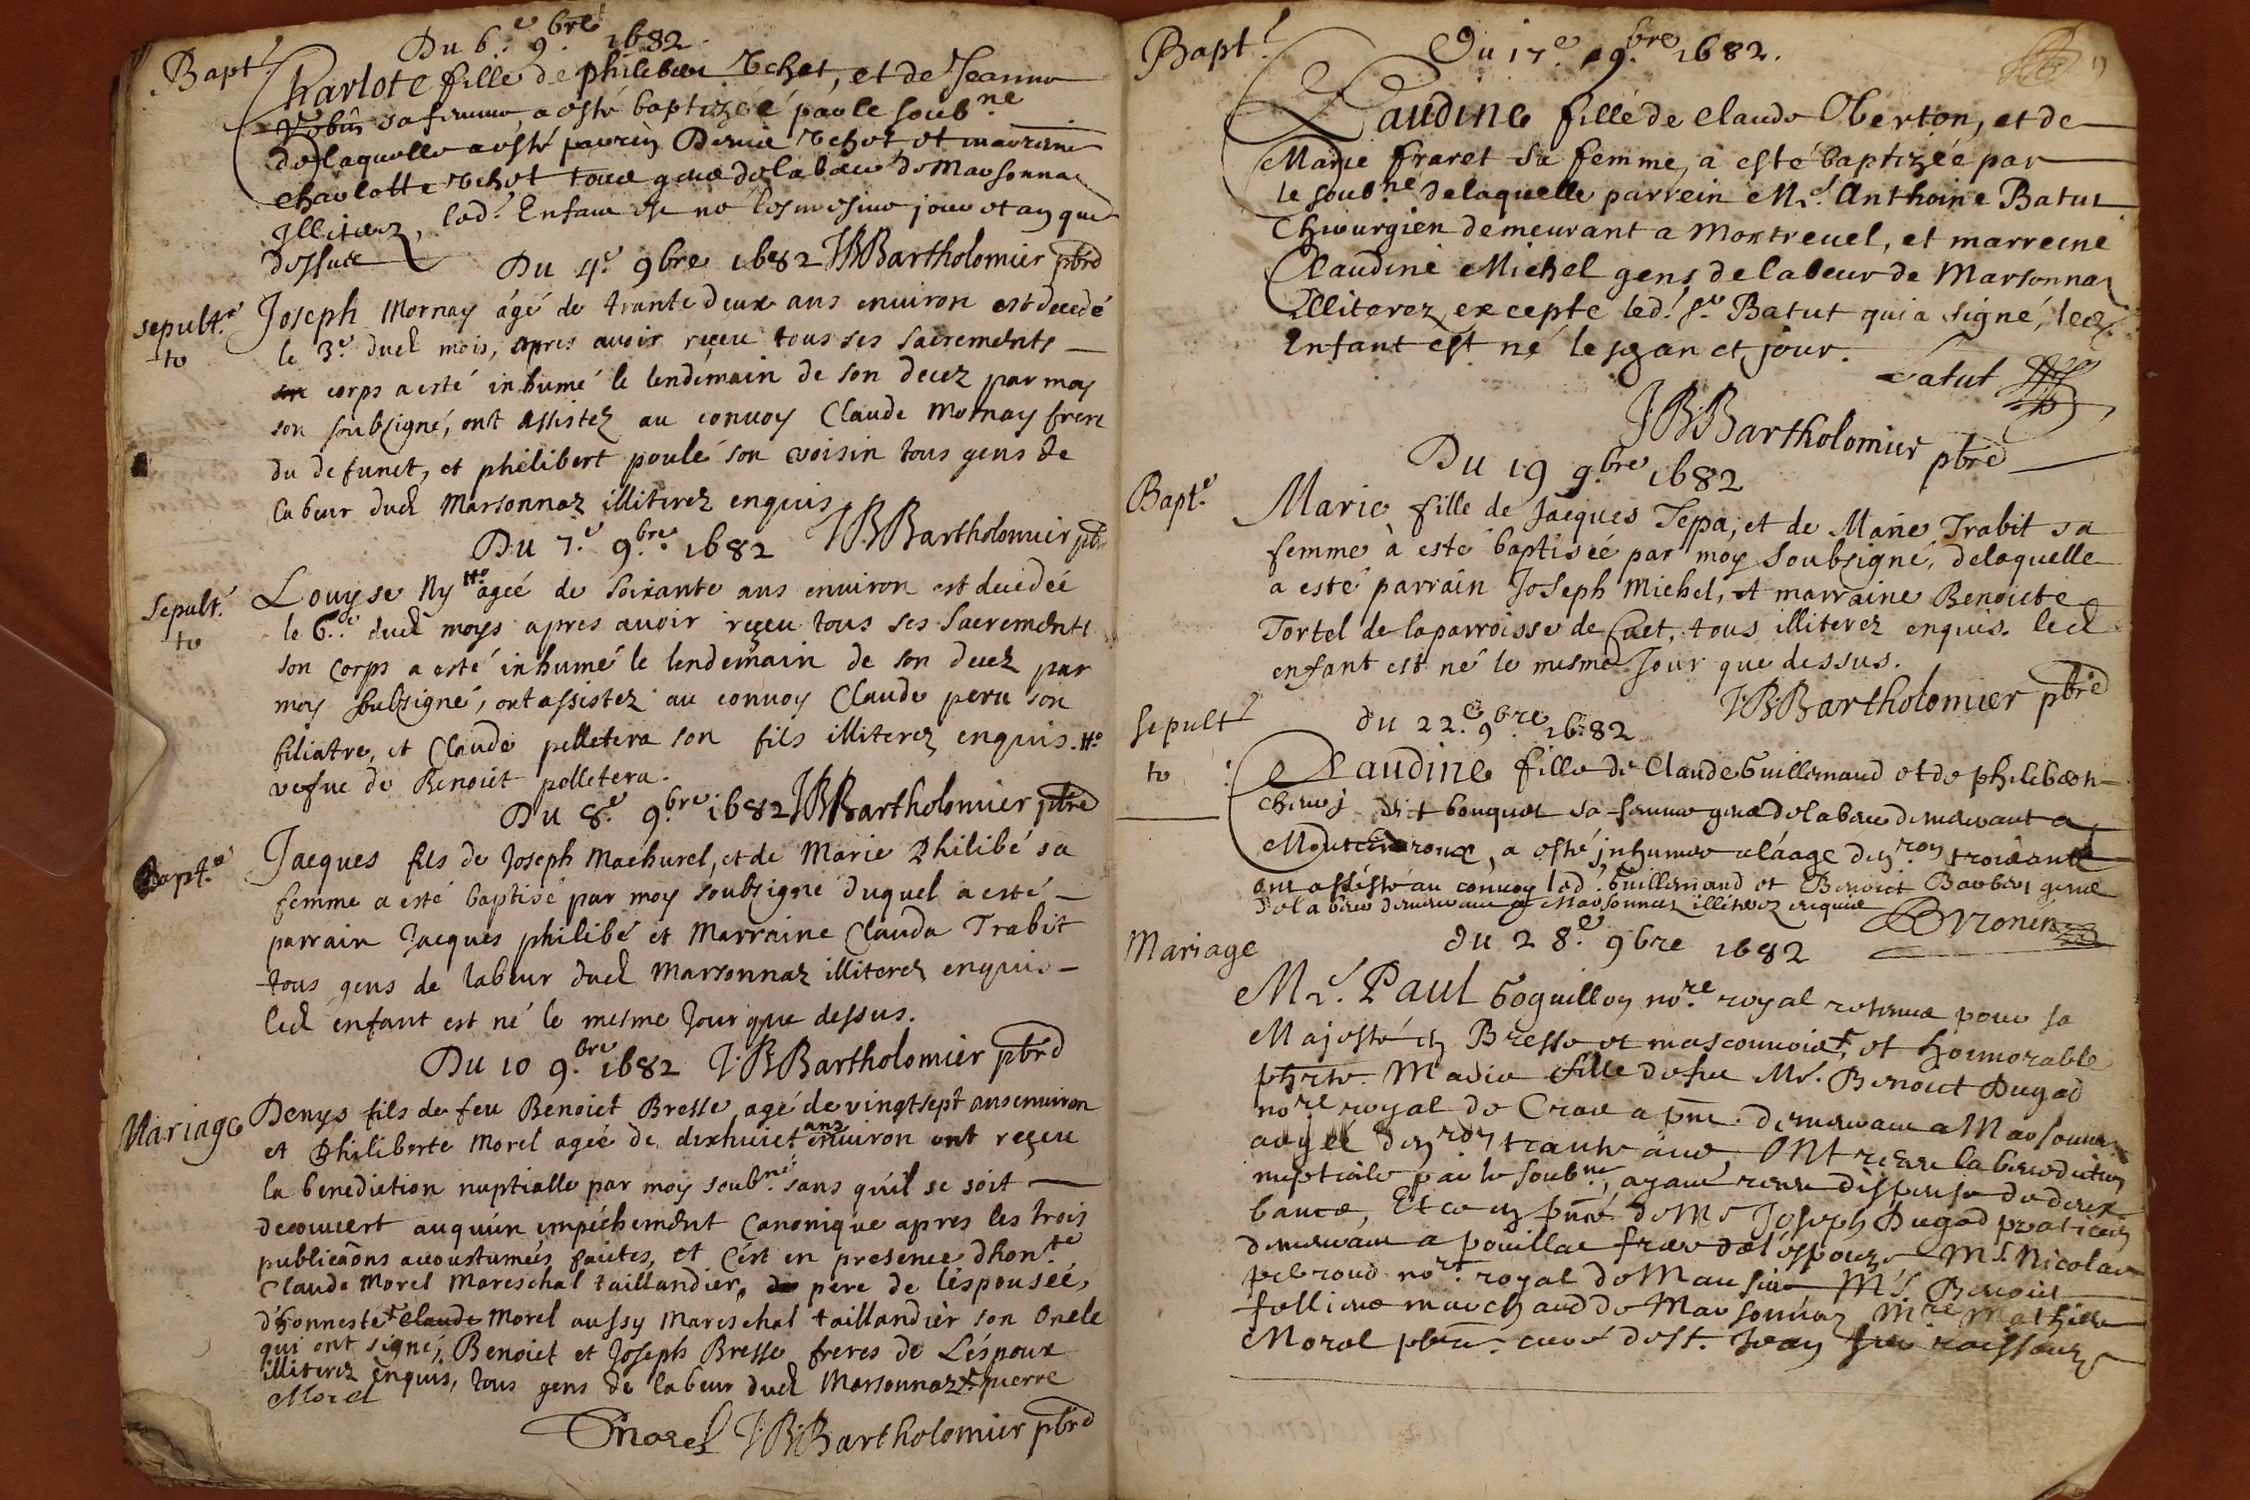 Du 6.e 9.bre 1682
Bapt.
Charlote fille de philibert Uchet, et de Jeanne
sa femme, a esté baptizée par le soub.ne
de laquelle a esté parrin Uchet, et marrene
Charlotte Uchet tous gens de labeur de Marsonnas
Illiterez, led. Enfant est né les mesme jour et an que
dessus
Du 4.e 9bre 1682 JB Bartholomier pbre
sepult.e
to
Joseph Mornay âgé de trante deux ans environ est decedé
le 3.e dud mois, apres avoir reçeu tous ses sacrements
corps a esté inhumé le lendemain de son decez par moy
son soubsigné, ont assistez au convoy Claude Mornay frere
du defunct, et philibert poulé son voisin tous gens de
labeur dud Marsonnaz illiterez enquis
JB Bartholomier pbre
Du 7.e 9.bre 1682
Sepult.
to
Louyse Ny agée de soixante ans environ est decedée
le 6.e dud moys apres avoir reçeu tous ses sacrements
son corps a esté inhumé le lendemain de son decez par
moy soubsigné, ont assistez au convoy Claude peru son
filiatre, et Claude pelletera son fils illiterez enquis.
vefve de Benoict pelletera.
Du 8.e 9.bre 1682 JB Bartholomier pbre
Bapt.e
Jacques fils de Joseph Machurel, et de Marie Philibé sa
femme a esté baptisé par moy soubsigné duquel a esté
parrain Jacques philibé et Marraine Clauda Trabit
tous gens de labeur dud Marsonnaz illiterez enquis
led enfant est né le mesme Jour que dessus.
Du 10 9.bre 1682 J.B. Bartholomier pbre
Mariage
Denys fils de feu Benoict Bresse, agé de vingt sept ans environ
et Philiberte Morel agée de dixhuict ans environ ont reçeu
la benediction nuptialle par moy soub.né sans qu'il se soit
decouvert auquun empéchement Canonique apres les trois
publicãons acoustumées faites, et c'est en presence d'hon.te
Claude Morel Mareschal taillandier, pere de l'espousée,
d'honneste Claude Morel aussy Mareschal taillandier son Oncle
qui ont signé, Benoict et Joseph Bresse freres de L'espoux
illiterez enquis, tous gens de labeur dud Marsonnaz pierre
Morel
Morel J.B. Bartholomier pbre
Bapt.
Du 17.e 9.bre 1682.
Claudine fille de Claude Oberton, et de
Marie fraret sa femme, a esté baptizée par
le soub.né de laquelle parrein M.r Anthoine Batut
Chirurgien demeurant a Montrevel, et marreine
Claudine Michel gens de labeur de Marsonnas
Illiterez, excepte led. s.r Batut qui a signé, led.
Enfant est né le an et jour.
Batut
J.B. Bartholomier pbre
Du 19 9.bre 1682
Bapt.e
Marie fille de Jacques Tepa, et de Marie Trabit sa
femme à esté baptisée par moy soubsigné, de laquelle
a esté parrain Joseph Michel, et marraine Benoicte
Tortel de la parroisse de Cuet, tous illiterez enquis. led
enfant est né le mesme Jour que dessus.
J.B. Bartholomier pbre
Sepult
to
du 22.e 9bre 1682
Claudine fille de Claude Guillemaud et de philiberte
dit bouquet sa femme gens de labeur demeurant a
a esté inhumée a l'áage d'en.ron trois ans
ont assisté au convoy led. Guillemaud et Benoict Barbet gens
de labeur demeurant a Marsonnas illiterez enquis
Mariage
du 28.e 9bre 1682
M.r Paul Goguillon no.re royal pour sa
Majesté en Bresse et masconnois, et honnorable
Marie fille de feu M.r Benoict Dugad
no.re royal de a demeurant a Marsonnas
aagée d'en.ron trante ans, Ont receu la benediction
nuptiale par le soub.ne, ayant receu dispense de deux
bancs, Et ce en de M.e Joseph Dugad praticien
demeurant a pouillac frere de l'espouze, M.r Nicolas
no.re royal de M.r Benoict
marchand de Marsonnas M.re Mathieu
Morel curé de St. Jean